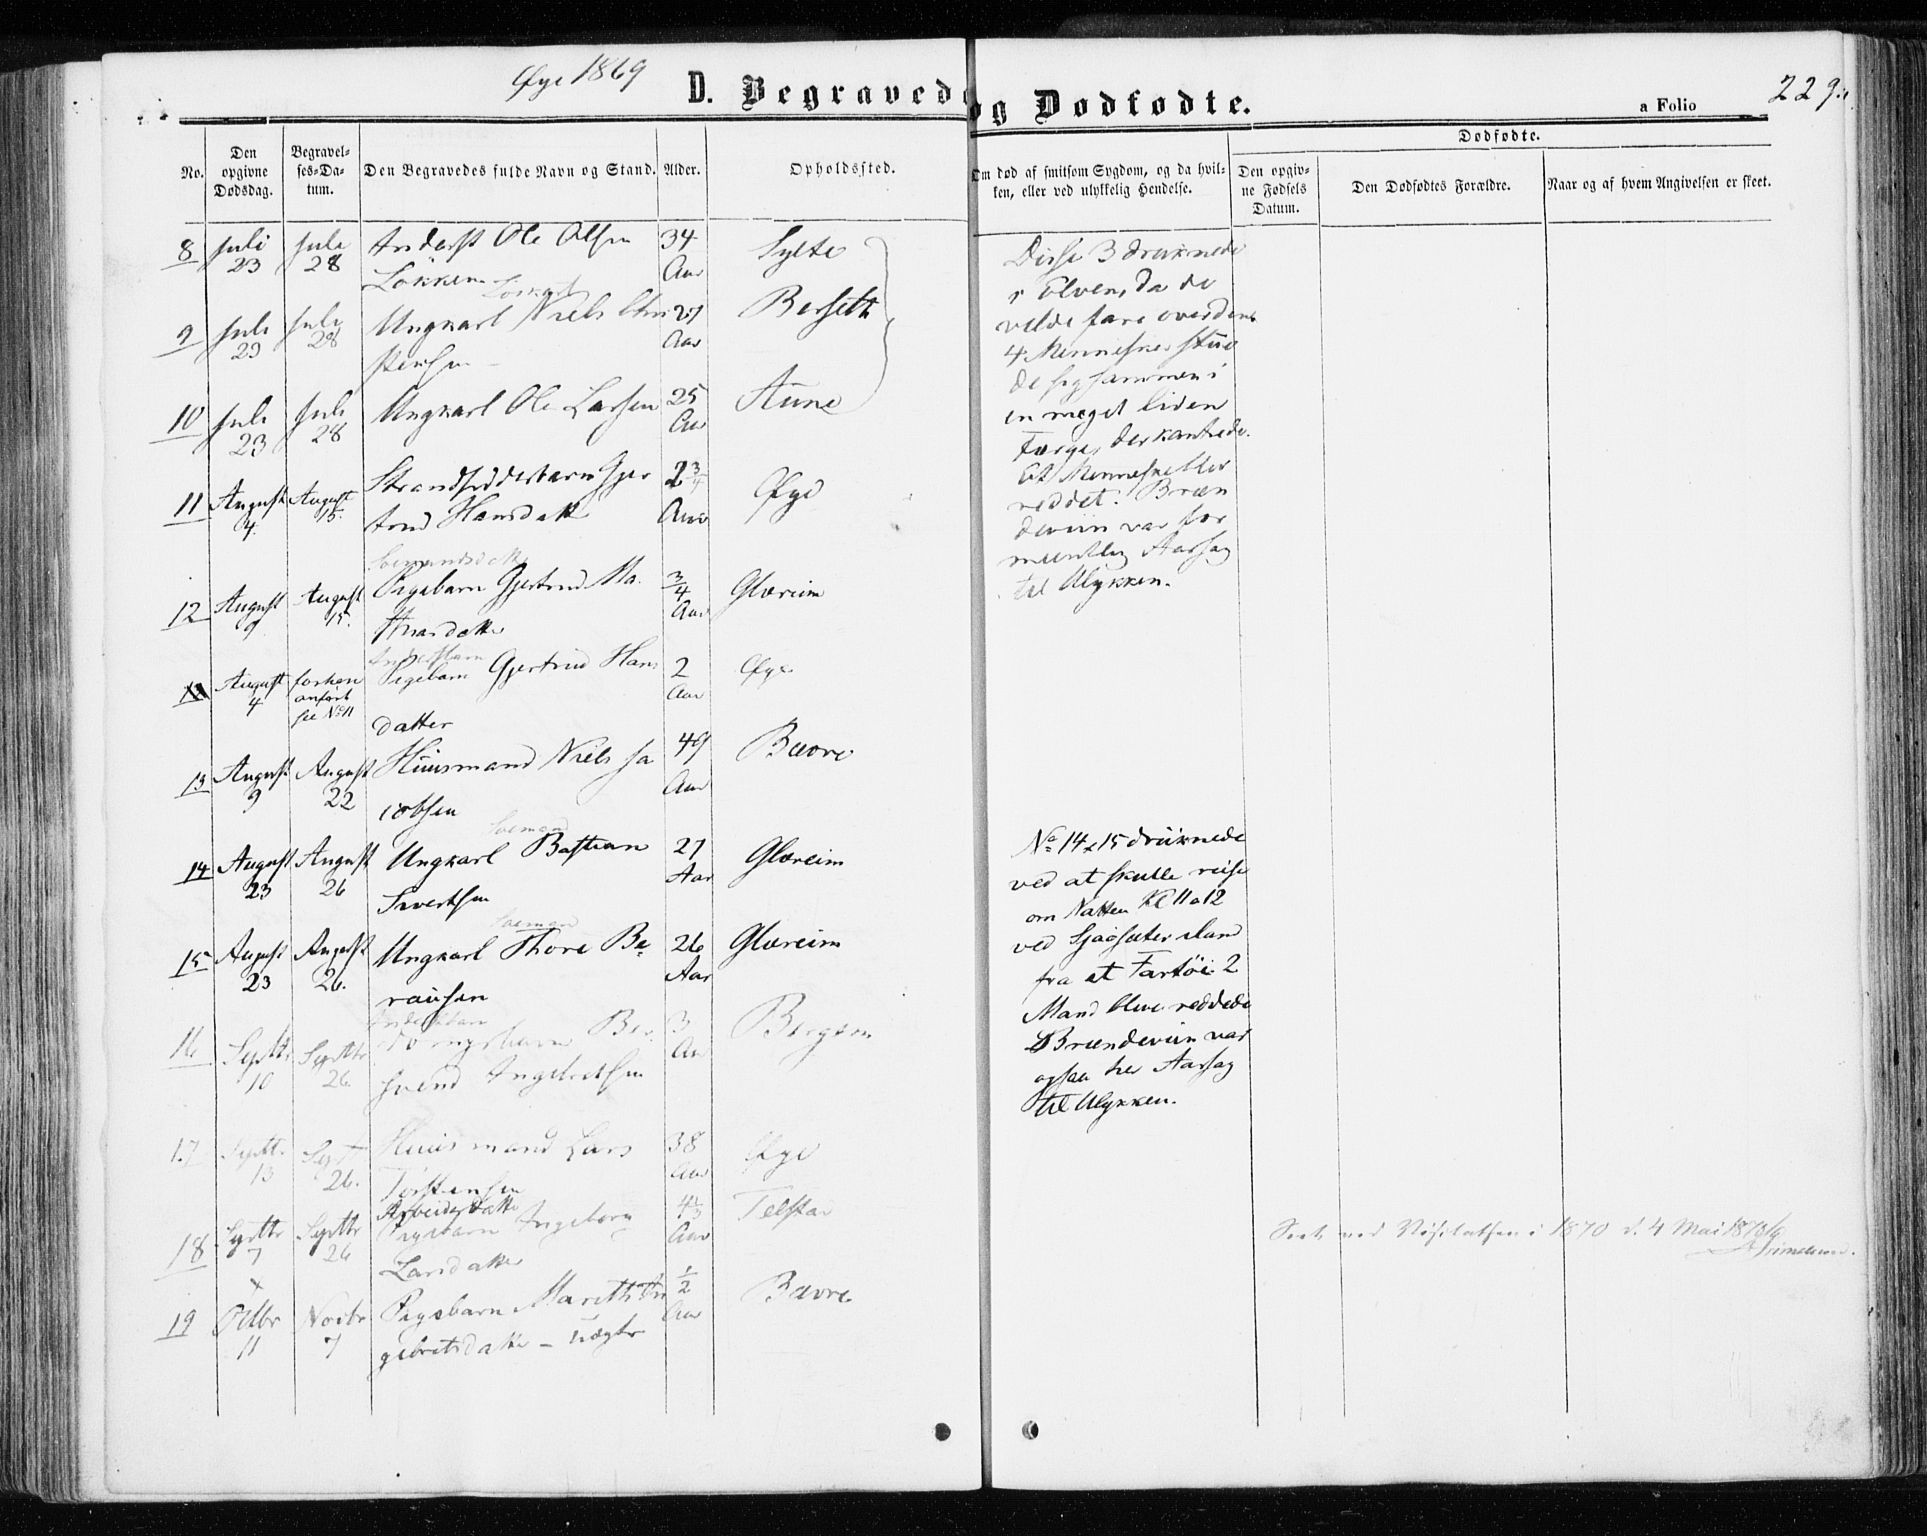 Øye 1869
D. Begravede og Dødfødte.
a Folio 229.
Dødfødte.
No.
Den opgivne Dødsdag.
Begravelses-Datum.
Den Begravedes fulde Navn og Stand.
Alder.
Opholdssted.
Om død af smitsom Sygdom, og da hvilken, eller ved ulykkelig Hendelse.
Den opgivne Fødsels Datum.
Den Dødfødtes Forældre.
Naar og af hvem Angivelsen er skeet.
8 Juli 23 Juli 28 Ole Olsen Løkken 34 Aar Sylte
9 Juli 23 Juli 28 Ungkarl Niels Christensen 27 Aar Berseth
10 Juli 23 Juli 28 Ungkarl Ole Larsen 25 Aar Aune
Disse 3 druknede
i Elven, da de
vilde fare over den.
4 Mennesker stuve
de sig sammen i
en meget liden
Færge, der kantrede.
Et Menneske blev
reddet. Bræn
deviin var for
meentlig Aarsag
til Ulykken.
11 August 4. August 15. Strandsidderbarn Gjertrud Hansdatt 2 3/4 Aar Øye
12 August 9 August 15. Pigebarn Gjertrud Ma 3/4 Aar Glæreim
August 4 forhen anført see No 11 Pigebarn Gjertrud Hans datter 2 Aar Øye
13 August 9 August 22 Huusmand Niels Jacobsen 49 Aar Bævre
14 August 23 August 26 Ungkarl Bastian Sivertsen 27 Aar Glæreim
Soemand
15 August 23 August 26. Ungkarl Thore 26 Aar Glæreim
Soemand
No 14 & 15 druknede
ved at skulle reise
om Natten Kl 11 a 12
ved iland
fra et Fartøi. 2
Mand bleve reddede
Brændeviin var
ogsaa her Aarsag
til Ulykken.
16 Septbr 10 Septbr 26. Ber svend Ingebretsen 3 Aar
17 Septbr 13 Septbr 26. Huusmand Lars Torstensen 38 Aar Øye
18 Septbr 7 Septbr 26 Arbeiderdatter Pigebarn Ingeborg Larsdatter Aar Telstad
19 Octbr 11 Novbr 7 Pigebarn Mareth Ingebretsdatter – uægte 1/2 Aar Bævre
Seet ved Visitatsen i 1870 d. 4 Mai 1870